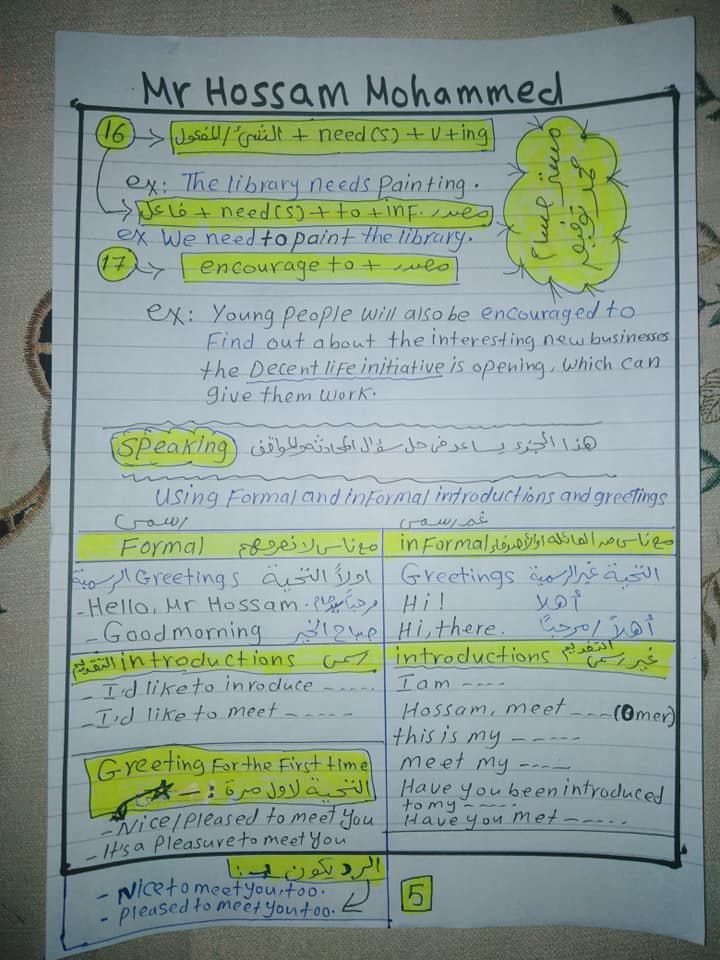 Mr Hossam Mohammed
16 → الشئ/المفعول + need(s) + v+ing
ex: The library needs painting.
→ فاعل + need(s) + to + inf. مصدر
ex We need to paint the library.
مستر حسام
17 → encourage to + مصدر
ex: Young people will also be encouraged to
Find out about the interesting new businesses
the Decent life initiative is opening, which can
give them work.
Speaking هذا الجزء يساعد فى حل سؤال المحادثه والمواقف
Using Formal and informal introductions and greetings
رسمى غير رسمى
Formal مع ناس لا نعرفهم
informal مع ناس من العائله او الأصدقاء
Greetings اولاً التحية الرسمية
- Hello, Mr Hossam. مرحباً مستر حسام
- Good morning صباح الخير
Greetings التحية غير الرسمية
Hi! أهلا
Hi, there. أهلاً / مرحباً
introductions التقديم رسمى
- I,d like to inroduce -----
- I,d like to meet -----
introductions التقديم غير رسمى
I am ----
Hossam, meet ---- (Omer)
this is my -----
meet my ----
Have you been introduced
to my -----
Have you met -----
Greeting For the First time
التحية لاول مرة :-
- Nice/pleased to meet you
- It's a pleasure to meet you
الرد يكون :-
- Nice to meet you, too.
- pleased to meet you too.
5